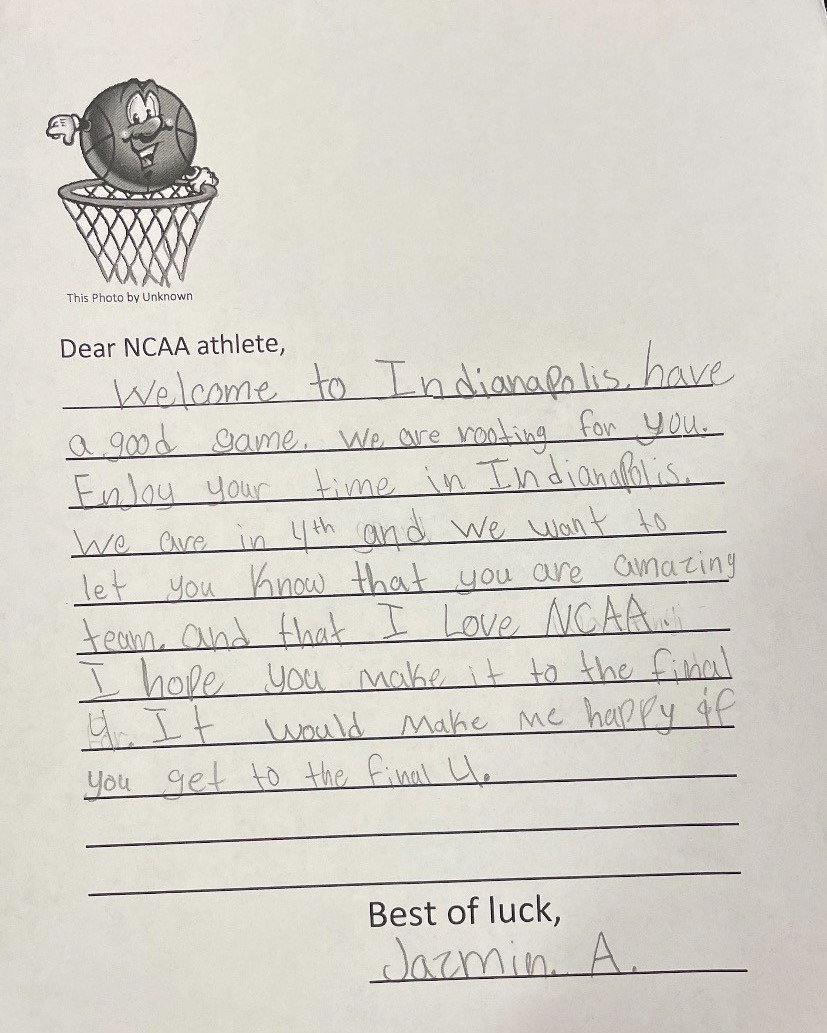 This Photo by Unknown
Dear NCAA athlete,
Welcome to Indianapolis. have
a good game. We are rooting for you.
Enjoy your time in Indianapolis.
We are in 4th and we want to
let you know that you are amazing
team. and that I Love NCAA.
I hope you make it to the final
4. It would make me happy if
you get to the final 4.
Best of luck,
Jazmin. A.